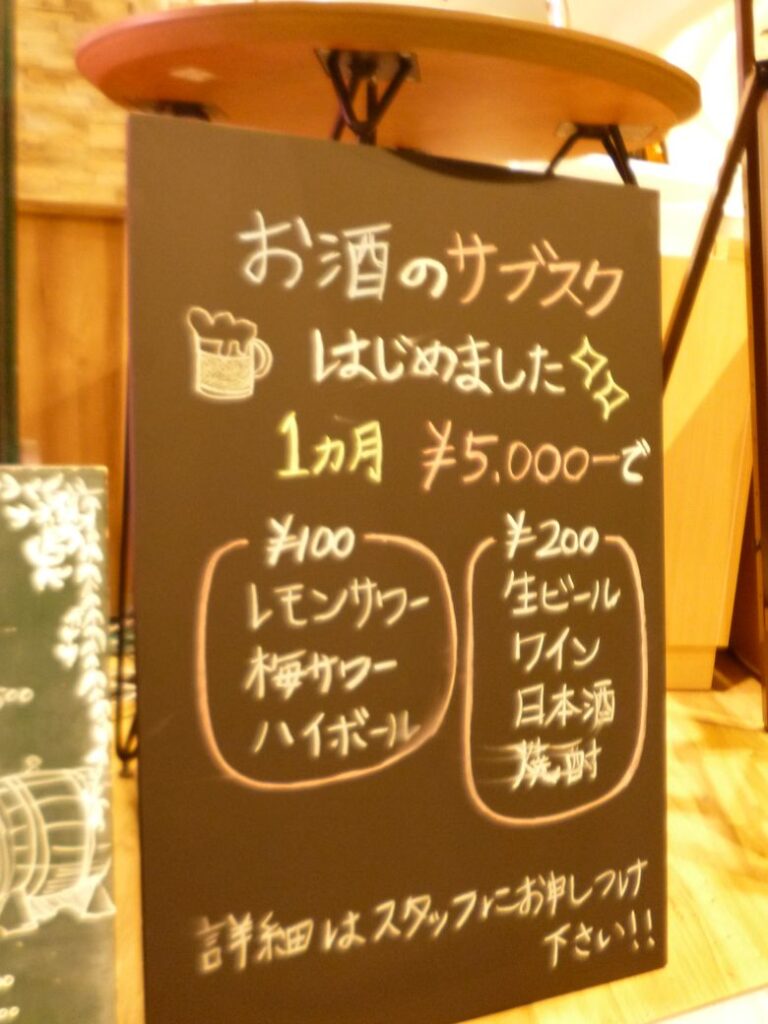 お酒のサブスク
はじめました
1カ月 ¥5,000ーで
¥100
レモンサワー
梅サワー
ハイボール
¥200
生ビール
ワイン
日本酒
焼酎
詳細はスタッフにお申しつけ
下さい!!